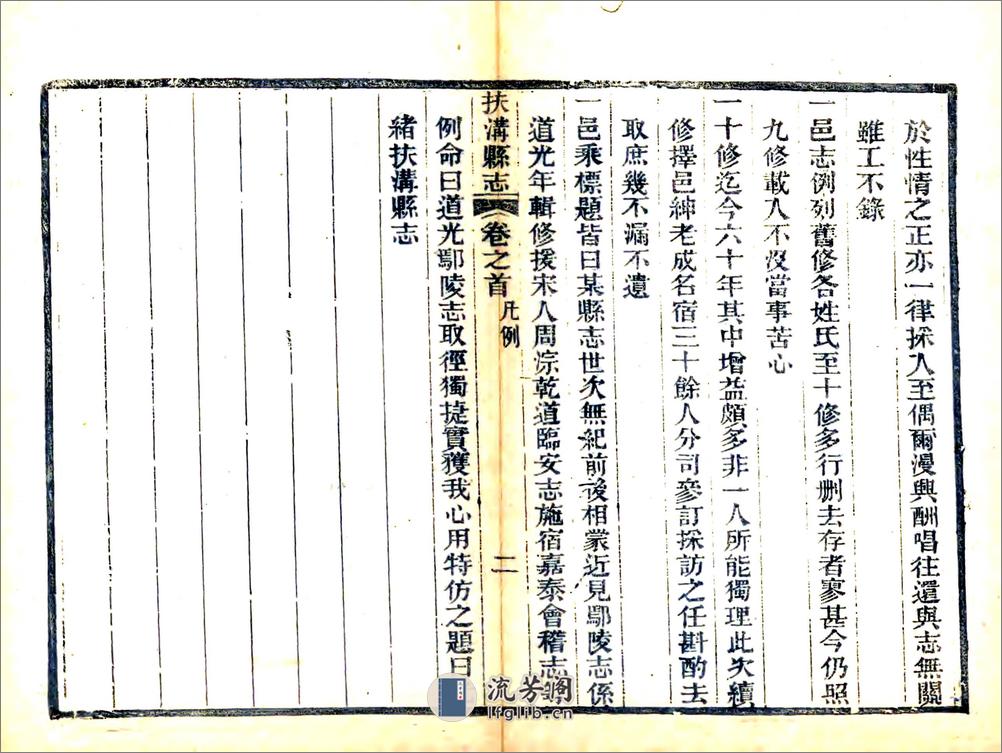 於性情之正亦一律採入至偶爾漫興酬唱往還與志無關
雖工不錄
一邑志例列舊修各姓氏至十修多行删去存者寥甚今仍照
九修載入不沒當事苦心
一十修迄今六十年其中增益頗多非一人所能獨理此次續
修擇邑紳老成名宿三十餘人分司叅訂採訪之任斟酌去
取庶幾不漏不遺
一邑乘標題皆曰某縣志世次無紀前後相蒙近見鄢陵志係
道光年輯修援宋人周淙乾道臨安志施宿嘉泰會稽志
扶溝縣志 卷之首 凡例 二
例命曰道光鄢陵志取徑獨捷實獲我心用特仿之題曰
緒扶溝縣志
流芳阁
lfglib.cn